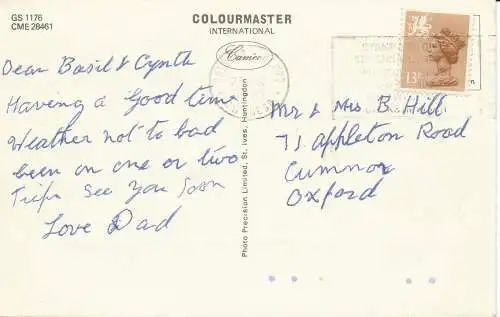 GS 1176
CME 28461
COLOURMASTER
INTERNATIONAL
13
Dear Basil & Cynth
Having a Good time
Weather not to bad
been on one or two
Trips See You Soon
Love Dad
Photo Precision Limited, St. Ives, Huntingdon
Mr & Mrs B. Hill
71 Appleton Road
Cumnor
Oxford